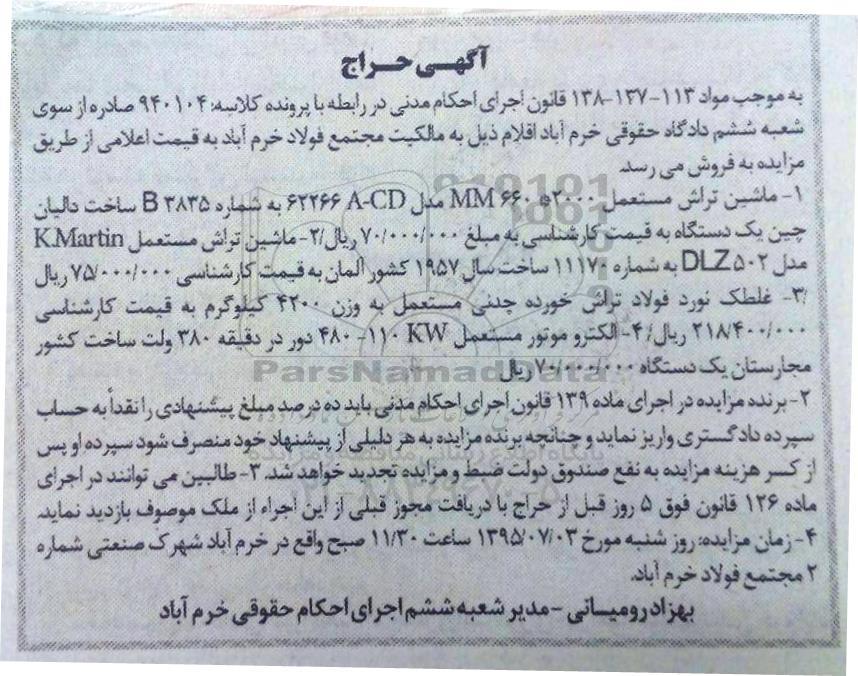 آگهی حراج
به موجب مواد ۱۱۳-۱۳۷-۱۳۸ قانون اجرای احکام مدنی در رابطه با پرونده کلاسه: ۹۴۰۱۰۴ صادره از سوی
شعبه ششم دادگاه حقوقی خرم آباد اقلام ذیل به مالکیت مجتمع فولاد خرم آباد به قیمت اعلامی از طریق
مزایده به فروش می رسد.
۱- ماشین تراش مستعمل ۲۰۰۰ ۶۶۰ MM مدل A-CD ۶۲۲۶۶ به شماره B ۳۸۳۵ ساخت دالیان
چین یک دستگاه به قیمت کارشناسی به مبلغ ۷۰/۰۰۰/۰۰۰ ریال/۲- ماشین تراش مستعمل K.Martin
مدل DLZ ۵۰۲ به شماره ۱۱۱۷۰ ساخت سال ۱۹۵۷ کشور آلمان به قیمت کارشناسی ۷۵/۰۰۰/۰۰۰ ریال
/۳- غلطک نورد فولاد تراش خورده چدنی مستعمل به وزن ۴۲۰۰ کیلوگرم به قیمت کارشناسی
۲۱۸/۴۰۰/۰۰۰ ریال/ ۴- الکترو موتور مستعمل ۱۱۰ KW- ۴۸۰ دور در دقیقه ۳۸۰ ولت ساخت کشور
مجارستان یک دستگاه ۷۰/۰۰۰/۰۰۰ ریال
ParsNamadData
۲- برنده مزایده در اجرای ماده ۱۳۹ قانون اجرای احکام مدنی باید ده درصد مبلغ پیشنهادی را نقداً به حساب
سپرده دادگستری واریز نماید و چنانچه برنده مزایده به هر دلیلی از پیشنهاد خود منصرف شود سپرده او پس
از کسر هزینه مزایده به نفع صندوق دولت ضبط و مزایده تجدید خواهد شد. ۳- طالبین می توانند در اجرای
ماده ۱۲۶ قانون فوق ۵ روز قبل از حراج با دریافت مجوز قبلی از این اجراء از ملک موصوف بازدید نماید.
۴- زمان مزایده: روز شنبه مورخ ۱۳۹۵/۰۷/۰۳ ساعت ۱۱/۳۰ صبح واقع در خرم آباد شهرک صنعتی شماره
۲ مجتمع فولاد خرم آباد.
بهزاد رومیانی - مدیر شعبه ششم اجرای احکام حقوقی خرم آباد